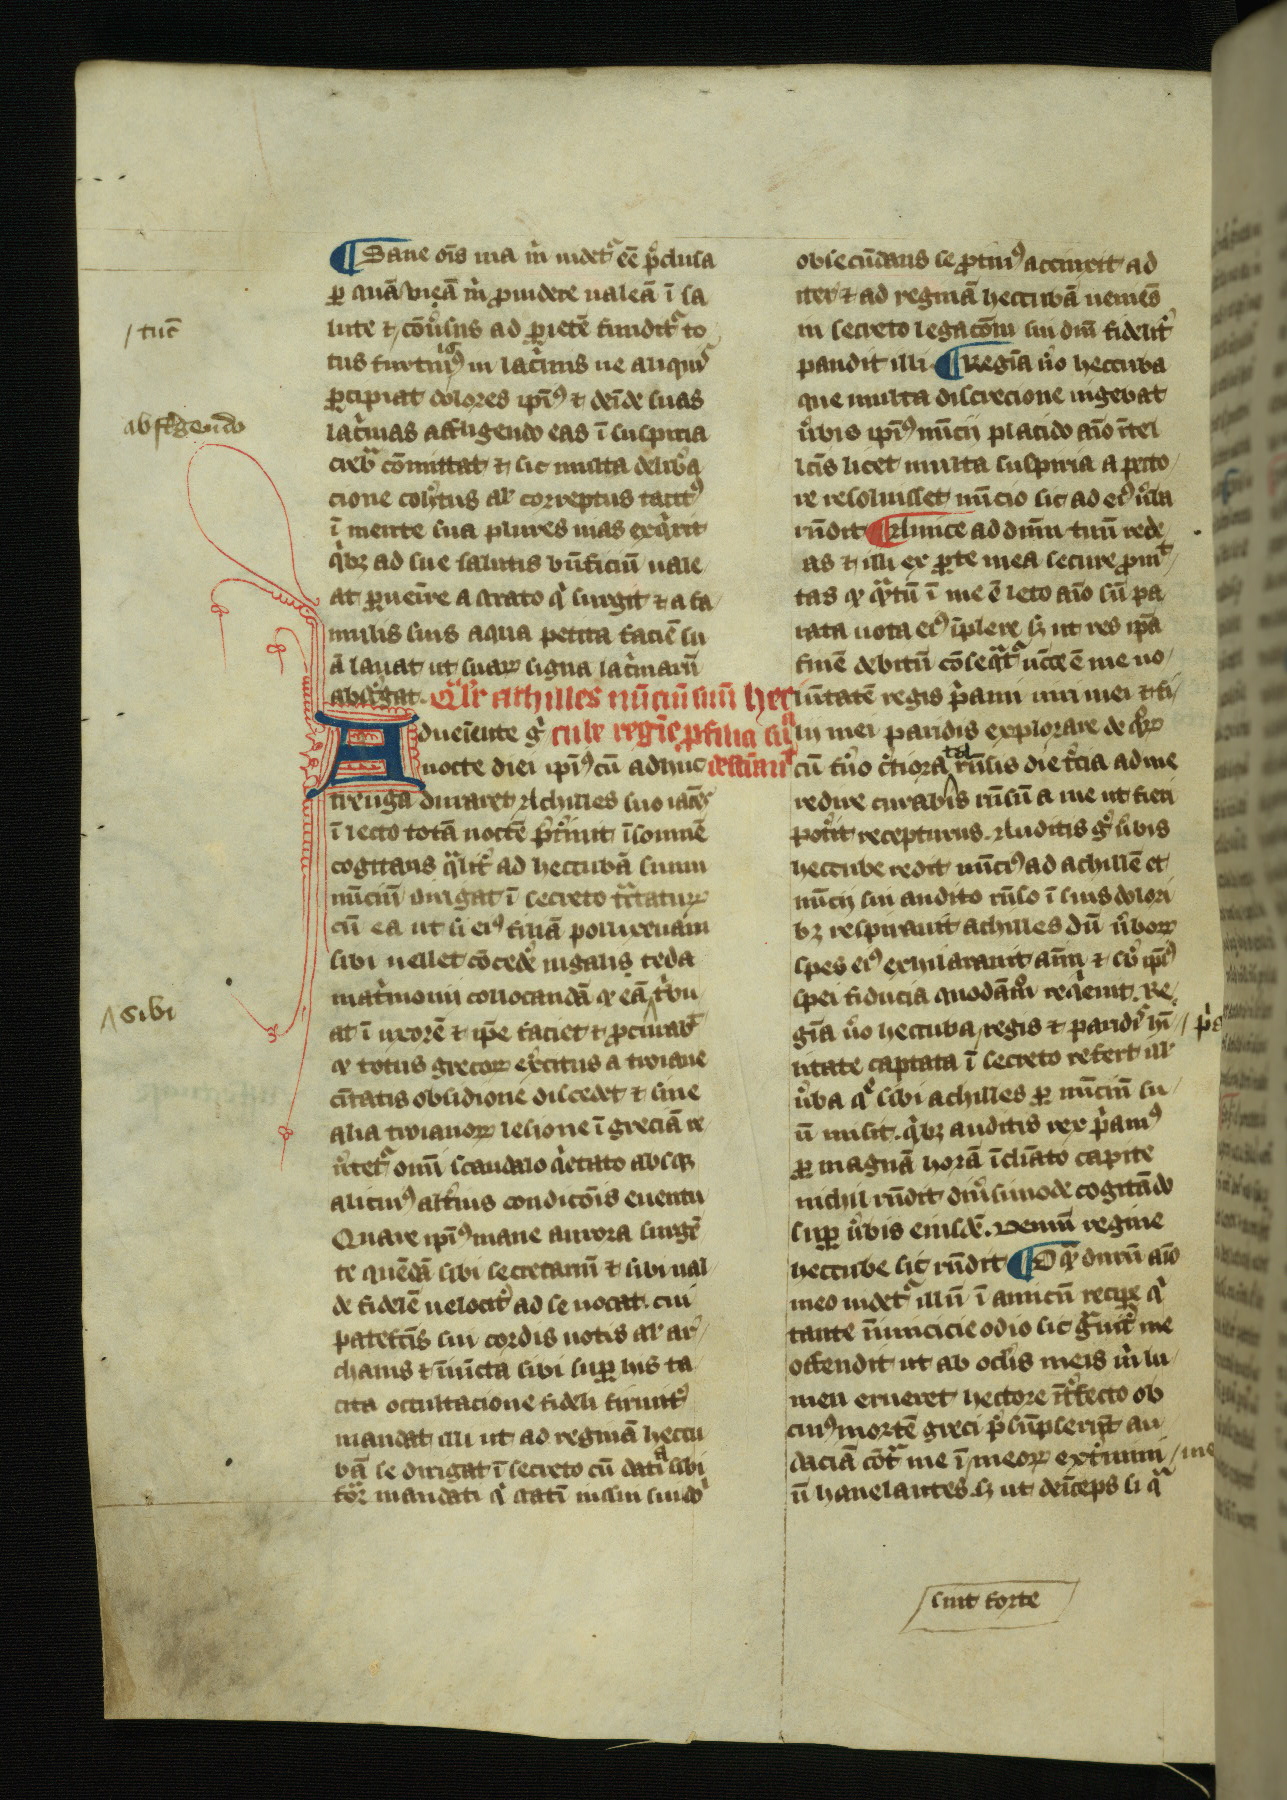 ¶ Sane oīs uia m̄ uidet᷑ eē p̄clusa
ꝑ quā uiçā m̄ ꝓuidere ualeā ī sa
lute ⁊ cōūsus ad ꝑietē fundit᷑ to
tus furtiuꝰ in lac̄mis ne aliquis
ꝑcipiat dolores ipīꝰ ⁊ deīde suas
lac̄mas affligendo eas ī suspiria
crebᵃ cōmittat ⁊ sic multa delibᵃ
cione cohītus al' correptus tacitꝰ
ī mente sua plures uias exq̄rit
q̄bꝫ ad sue salutis bn̄ficiū uale
at ꝑuenire a strato qͥ surgit ⁊ a fa
mulis suis aqua petita faciē su
ā lauat ut suaꝝ signa lac̄marū
absṫgat. Qͣlr̄ achilles nūciū suū hec
Adueīente gͦ cube regīe ꝓ filia suᵃ
nocte diei ipīꝰ cū adhuc destinauit
treuga duraret Achilles suo iacēs
ī lecto totā noctē ꝑtrāsiuit īsomnē
cogitans qͣlit᷑ ad heccubā suum
nūciū dirigat ī secreto tͣctaturꝰ
cū ea ut si eiꝰ filiā pollixenam
sibi uellet cōcede᷑ iugalis teda
mat̄monii collocandā ꝙ eā tͥbu
at ī uxorē ⁊ ip̄e faciet ⁊ ꝓcurab᷑
ꝙ totus grecoꝝ ex̄citus a troiane
ciuitatis obsidione discedet ⁊ sine
alia troianoꝝ lesione ī greciā re
ūtet᷑ omī scandalo q̄etato absqꝫ
alicuiꝰ alt̄ius condicōis euentu
Quare ipīꝰ mane aurora surgē
te quēdā sibi secretariū ⁊ sibi ual
de fidelē uelocit᷑ ad se uocat. cui
patefc̄is sui cordis uotis al' ar
chanis ⁊ īiūcta sibi suꝑ his ta
cita occultacione fideli firmit᷑
mandat illi ut ad reginā heccu
bā se dirigat ī secreto cū datᵃ sibi
for᷑ mandati qͥ statī iussui sui dn̄i
/tūc
abstergendo
^sibi
obsecūdans se ꝓtinꝰ accinxit ad
iter ⁊ ad reginā heccubā ueniēs
in secreto legacōm sui dn̄i fidelit᷑
pandit illi. ¶ Regīa ūo heccuba
que multa discrecione uigebat
ūbis ipīꝰ nūcii placido aīo ītel
lc̄is licet multa suspiria a pecto
re resoluisset nūcio sic ad eiꝰ ūba
rn̄dit ¶ Amice ad dn̄m tuū rede
as ⁊ illi ex ꝑte mea secure ꝓmit
tas ꝙ qͣtū ī me ē leto aīo sū pa
rata uota eiꝰ īplere sꝫ ut res ipā
finē debitū cōseq̄t᷑ n̄cce ē me uo
lūtatē regis pͥami uiri mei ⁊ fi
lii mei paridis explorare de qͥꝝ
cū ūo c̄tiora tͣbl rn̄sis die t̄cia ad me
redire curabis rn̄sū a me ut fieri
potͥit recepturus. Auditis gͦ ūbis
heccube redit nūciꝰ ad achillē et
nūcii sui audito rn̄so ī suis dolori
bꝫ respirauit achilles dū ūboꝝ
spes eiꝰ exhilarauit aīm ⁊ sb̄ ipīꝰ
spei fiducia quodāmͦ req̄euit. Re
gīa ūo heccuba /regis ⁊ paridis hūi /p̄s
litate captata ī secreto refert ill'
ūba q̄ sibi achilles ꝑ nūciū su
ū misit. q̄bꝫ auditis rex pͥamꝰ
ꝑ magnā horā īcliato capite
nichil rn̄dit diūsimode cogitādo
suꝑ ūbis eiusdē. Demū regine
heccube sic rn̄dit ¶ O qͣ durū aīo
meo uidet᷑ illū ī amicū recipe qͥ
tante īimicicie odio sic gͣuit᷑ me
offendit ut ab oclis meis m̄ lu
men erueret hectore ītͤfecto ob
cuiꝰ mortē greci p̄sūpserūt au
daciā cōtͣ me ī /meoꝝ extͤmini /me
ū hanelantes. sꝫ ut deīceps si qͣ
sint forte